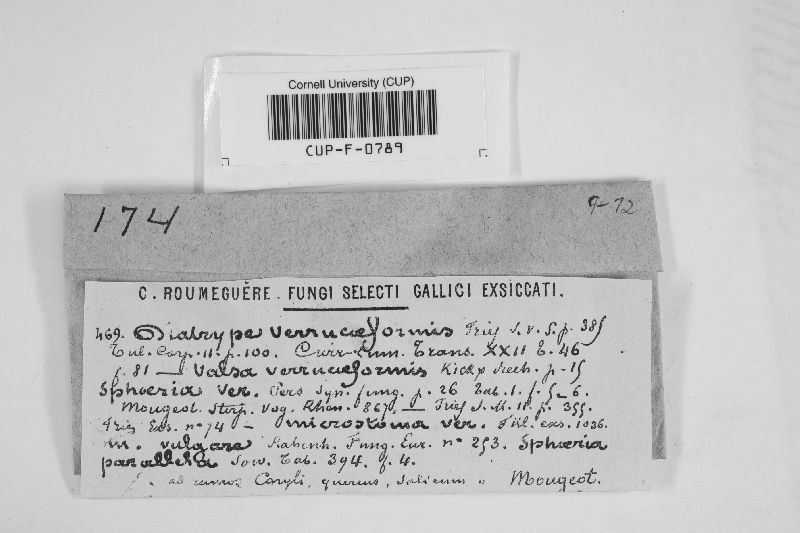 Cornell University (CUP)
CUP-F-0789
174
9-72
C. ROUMEGUÈRE. FUNGI SELECTI GALLICI EXSICCATI.
469. Diatrype verrucæformis Fries S. v. S. p. 385
Tul. Carp. II. p. 100. Curr. Linn. Trans. XXII t. 46
f. 81 — Valsa verrucæformis Kickx p. 15
Sphæria ver. Pers Syn. fung. p. 26 Tab. 1. f. 5_6.
Mougeot. Stirp. Vog. Rhen. 867. — Fries S. M. II. p. 355.
Fries Exs. nº 74 — microstoma ver. exs. 1036.
M. vulgare Rabenh. Fung. Eur. nº 253. Sphæria
parallela Sow. Tab. 394. f. 4.
ad ramos Coryli, quercus, Salicum. Mougeot.